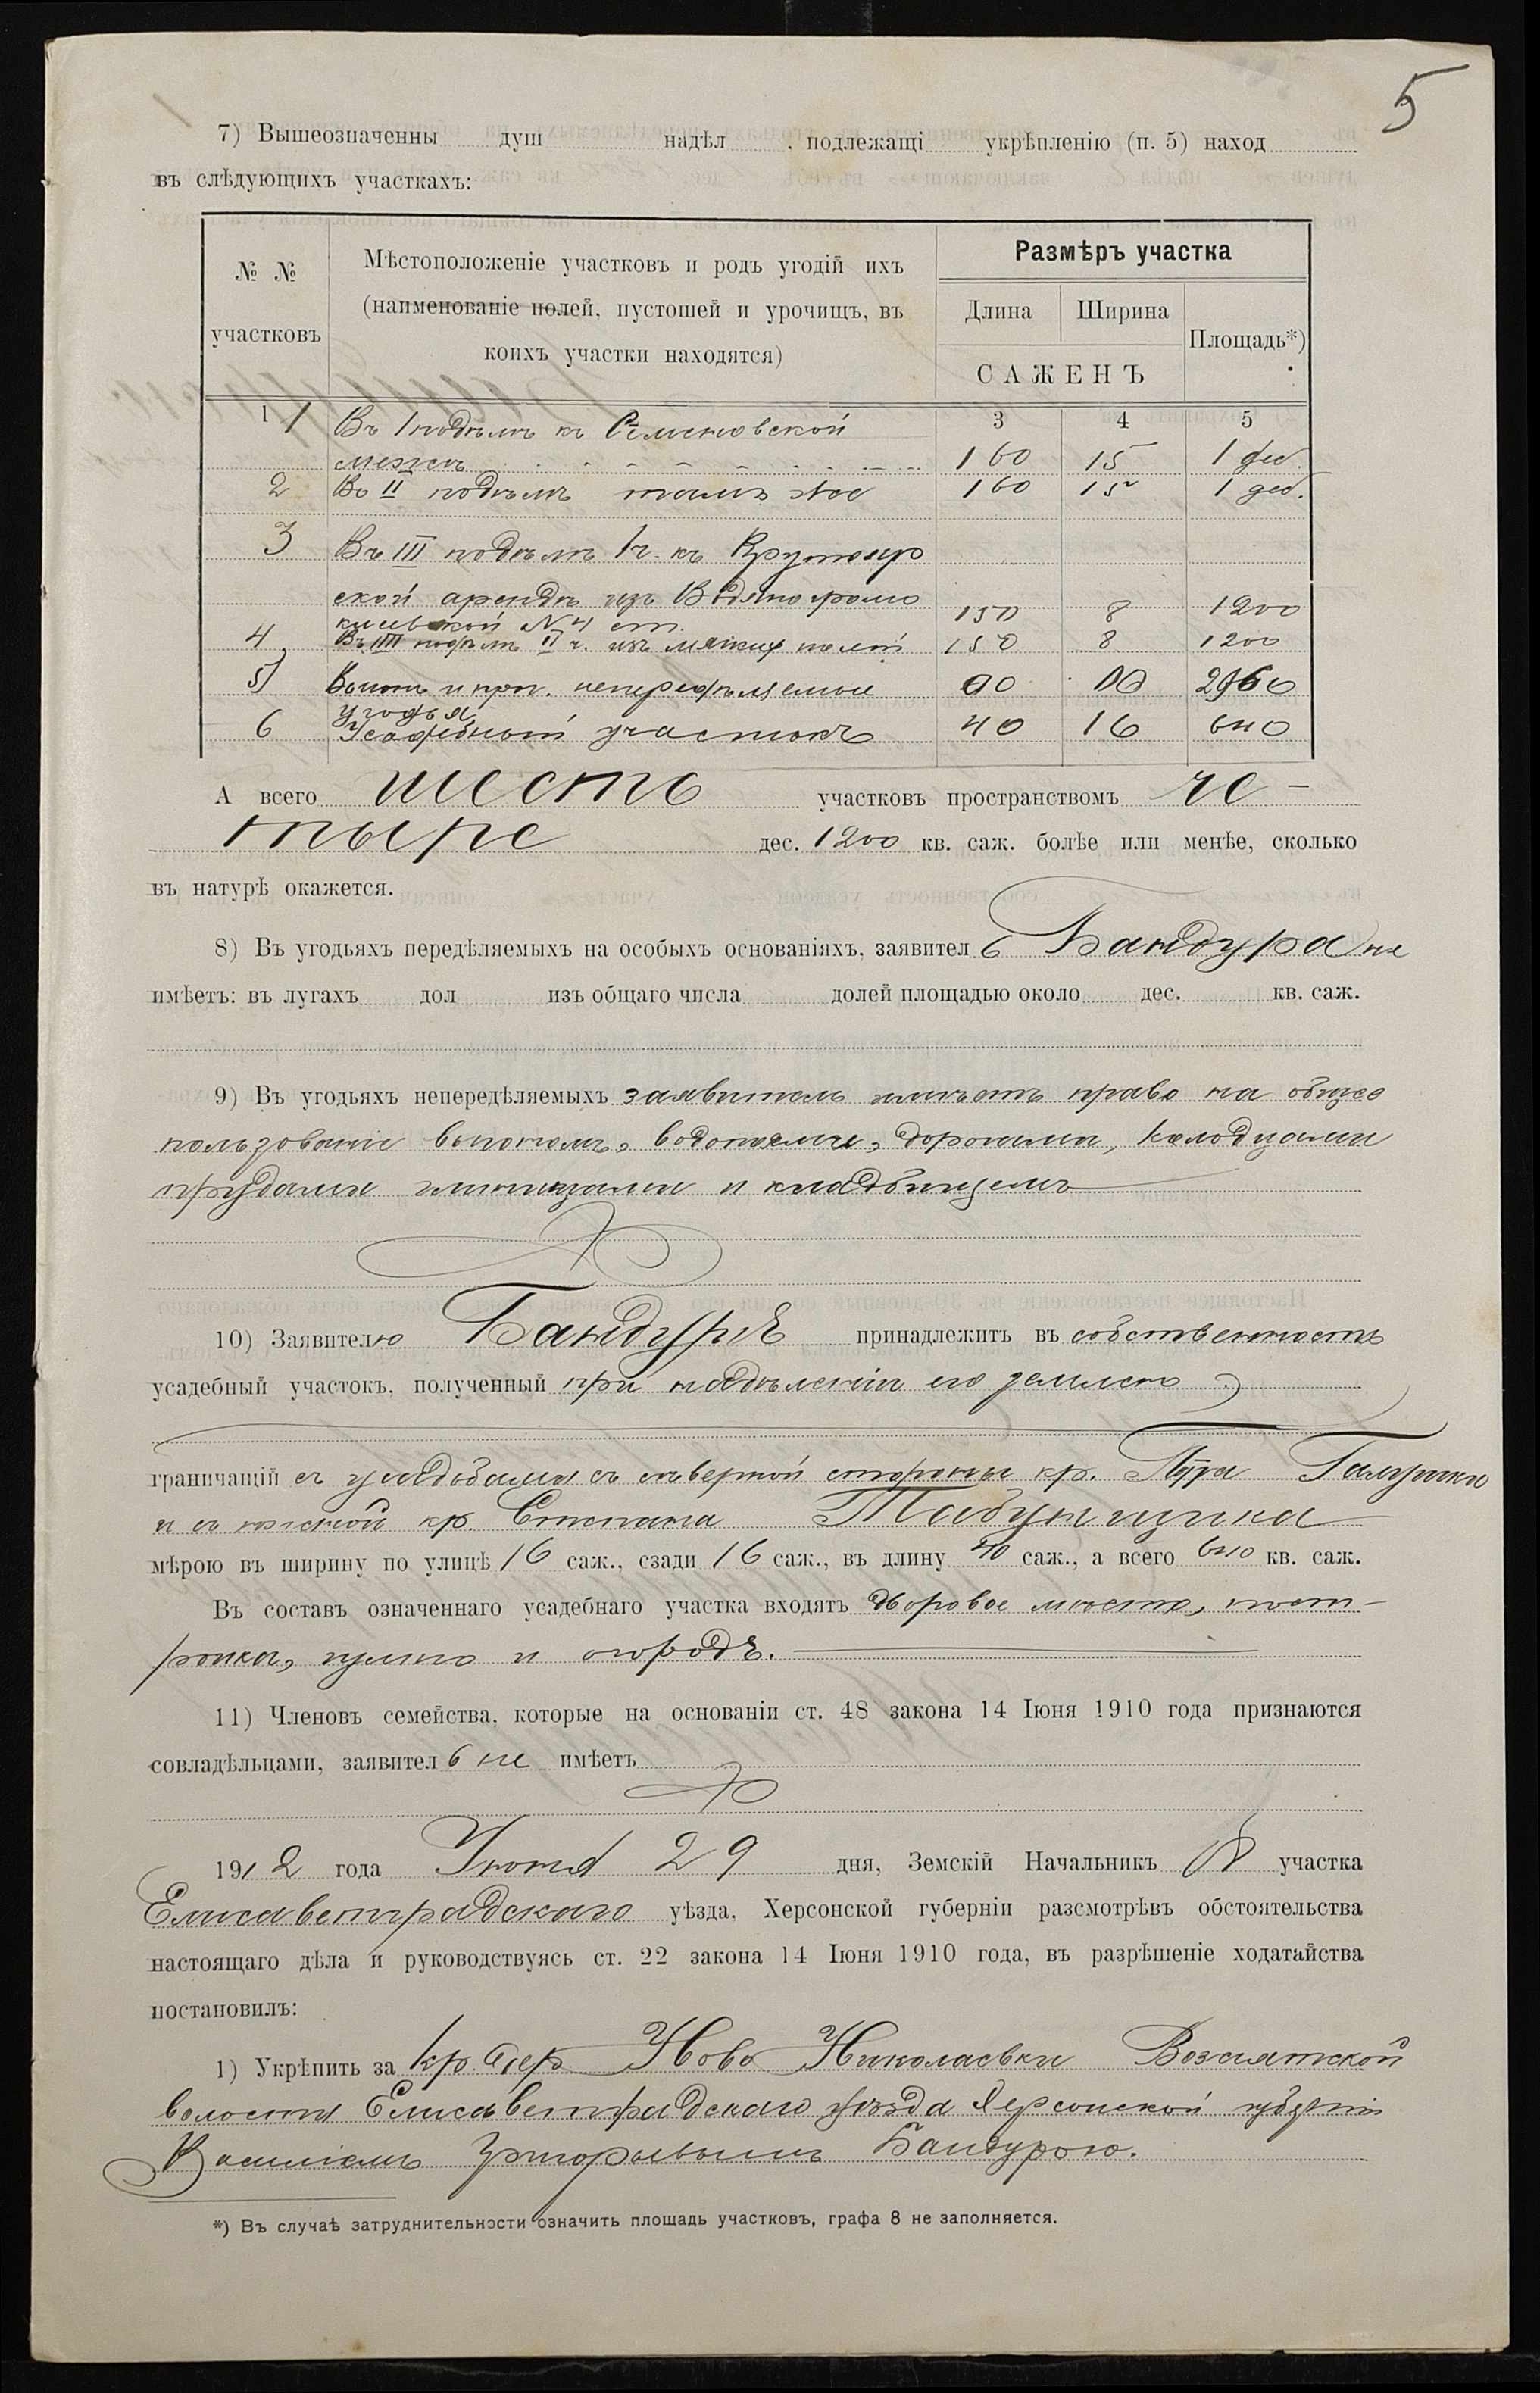 5
7) Вышеозначенны душ надѣл , подлежащі укрѣпленію (п. 5) наход
въ слѣдующихъ участкахъ:
№ № участковъ
Мѣстоположеніе участковъ и родъ угодій ихъ
(наименованіе полей, пустошей и урочищъ, въ
коихъ участки находятся)
Размѣръ участка
Длина Ширина Площадь*)
САЖЕНЪ
1 3 4 5
1 Въ I подѣлѣ къ Семеновской
межѣ 160 15 1 дес.
2 Въ II подѣлѣ тамъ же 160 15 1 дес.
3 Въ III подѣлѣ 1 ч. къ
ской арендѣ изъ 150 8 1200
№ 4 ст.
4 Въ IIII подѣлѣ II ч. изъ мягких полей 150 8 1200
5) Выгонъ и проч. непередѣляемые 2960
угодья
6 Усадебный участокъ 40 16 640
А всего шесть участковъ пространствомъ че-
тыре дес. 1200 кв. саж. болѣе или менѣе, сколько
въ натурѣ окажется.
8) Въ угодьяхъ передѣляемыхъ на особыхъ основаніяхъ, заявитель Бандура не
имѣетъ: въ лугахъ дол изъ общаго числа долей площадью около дес. кв. саж.
9) Въ угодьяхъ непередѣляемыхъ заявитель имѣетъ право на общее
пользованіе выгономъ, водопоями, дорогами, колодцами
прудами глинищами и кладбищемъ
10) Заявителю Бандурѣ принадлежитъ въ собственность
усадебный участокъ, полученный при надѣленіи его землею
граничащій съ усадьбами съ сѣверной стороны кр. Петра Галушки
и съ южной кр. Степана Табунщика
мѣрою въ ширину по улицѣ 16 саж., сзади 16 саж., въ длину 40 саж., а всего 640 кв. саж.
Въ составъ означеннаго усадебнаго участка входятъ дворовое мѣсто, пост-
ройка, гумно и огородъ.
11) Членовъ семейства, которые на основаніи ст. 48 закона 14 Іюня 1910 года признаются
совладѣльцами, заявитель не имѣетъ
1912 года Іюня 29 дня, Земскій Начальникъ 8 участка
Елисаветградскаго уѣзда, Херсонской губерніи разсмотрѣвъ обстоятельства
настоящаго дѣла и руководствуясь ст. 22 закона 14 Іюня 1910 года, въ разрѣшеніе ходатайства
постановилъ:
1) Укрѣпить за кр. дер. Ново Николаевки Возсіятской
волости Елисаветградскаго уѣзда Херсонской губерніи
Василіемъ Григорьевымъ Бандурою.
*) Въ случаѣ затруднительности означить площадь участковъ, графа 8 не заполняется.